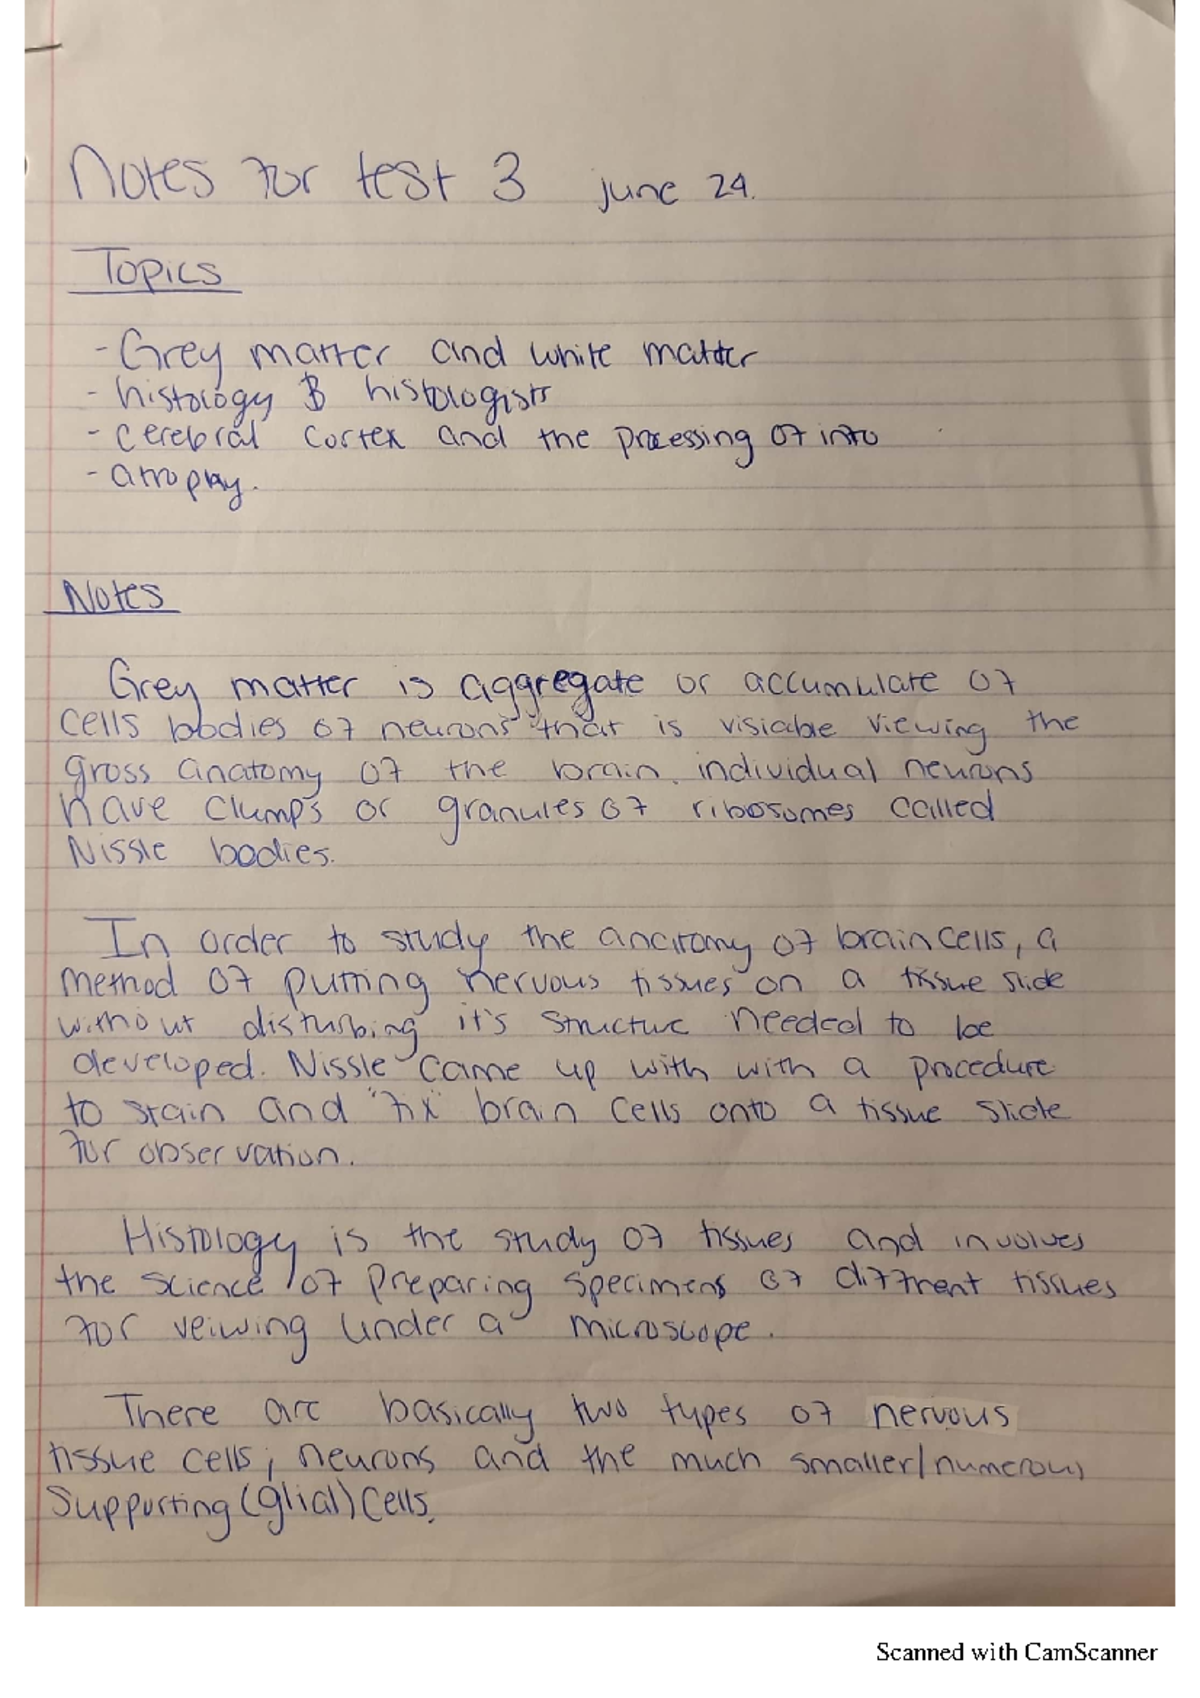 Notes for test 3 june 24.
Topics
- Grey matter and white matter
- histology & histologists
- cerebral cortex and the processing of info
- atrophy.
Notes
Grey matter is aggregate or accumulate of
cells bodies of neurons that is visiable viewing the
gross anatomy of the brain. individual neurons
have clumps or granules of ribosomes called
Nissle bodies.
In order to study the anatomy of brain cells, a
method of putting nervous tissues on a tissue slide
without disturbing it's structure needed to be
developed. Nissle came up with with a procedure
to stain and "fix" brain cells onto a tissue slide
for observation.
Histology is the study of tissues and involves
the science of preparing specimens of diffrent tissues
for veiwing under a microscope.
There are basically two types of nervous
tissue cells; neurons and the much smaller/numerous
supporting (glial) cells.
Scanned with CamScanner